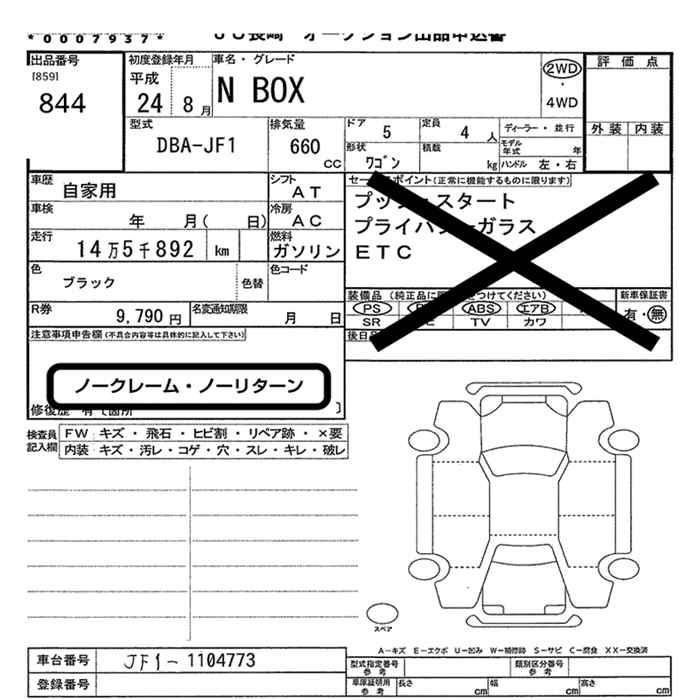 *00079​37*
JU長崎 オークション出品申込書
出品番号
[859]
844
初度登録年月
平成
24 8月
車名・グレード
N BOX
2WD
・
4WD
評価点
外装 内装
型式
DBA-JF1
排気量
660
CC
ドア
5
定員
4 人
ディーラー・並行
形状
ワゴン
積載
kg
モデル年式 年
ハンドル 左・右
車歴 自家用
シフト AT
車検 年 月( 日)
冷房 AC
走行 14万5千892 km
燃料 ガソリン
色 ブラック
色替
色コード
R券 9,790円
名変通知期限 月 日
セールスポイント(正常に機能するものに限ります)
プッシュスタート
プライバシーガラス
ETC
装備品
PS ABS エアB
SR TV カワ
新車保証書
有・無
注意事項申告欄(不具合内容等は具体的に記入して下さい)
ノークレーム・ノーリターン
検査員記入欄
FW キズ・飛石・ヒビ割・リペア跡・×要
内装 キズ・汚レ・コゲ・穴・スレ・キレ・破レ
スペア
A-キズ E-エクボ U-凹み W-補修跡 S-サビ C-腐食 XX-交換済
車台番号 JF1-1104773
登録番号
型式指定番号 参考
類別区分番号 参考
車庫証明用 参考
長さ cm
幅 cm
高さ cm